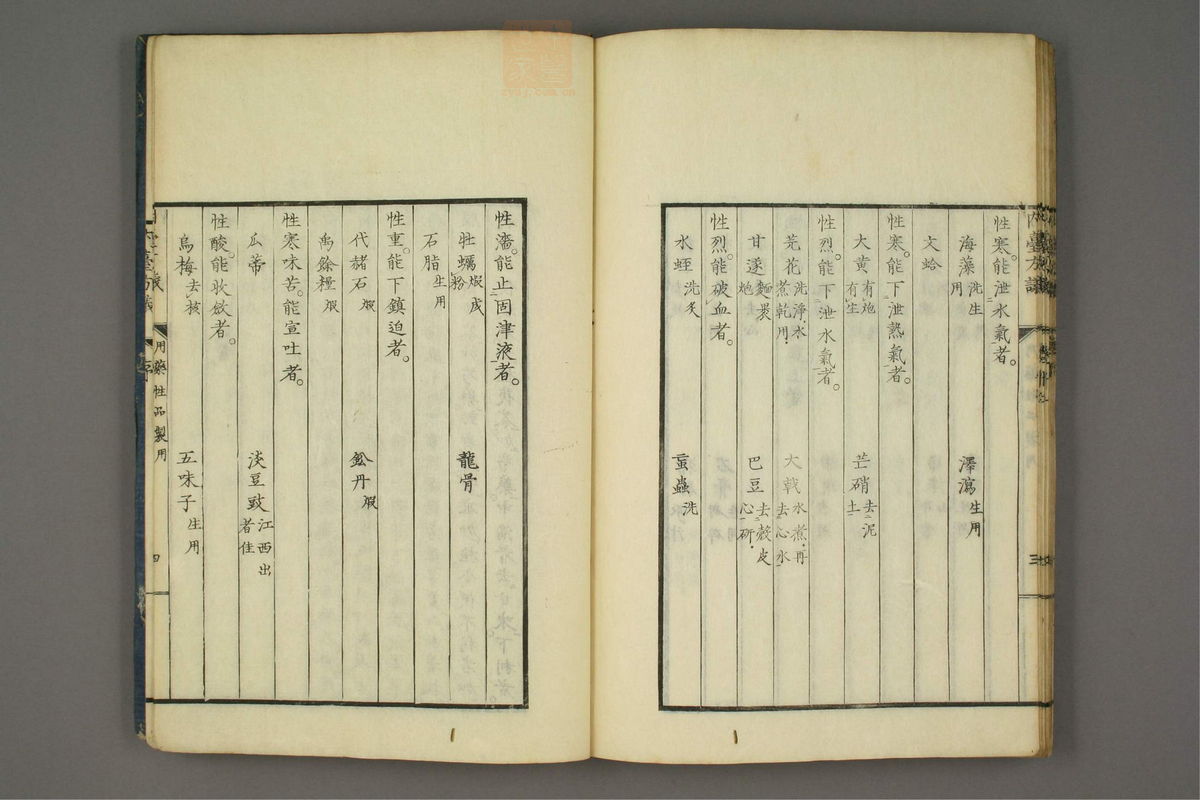 性寒。能泄水氣者。
海藻 洗生用 澤瀉 生用
文蛤
性寒。能下泄熱氣者。
大黃 有炮有生 芒硝 去泥土
性烈。能下泄水氣者。
芫花 洗淨水煮乾用 大戟 水煮再去心水
甘遂 麵裹炮 巴豆 去殼皮心研
性烈。能破血者。
水蛭 洗炙 䖟蟲 洗
三
性濇。能止固津液者。
牡蠣 煆成粉 龍骨
石脂 生用
性重。能下鎮迫者。
代赭石 煆 鈆丹 煆
禹餘糧 煆
性寒味苦。能宣吐者。
瓜蒂 淡豆豉 江西出者佳
性酸。能收斂者。
烏梅 去核 五味子 生用
用藥性品製用
四
zysj.com.cn